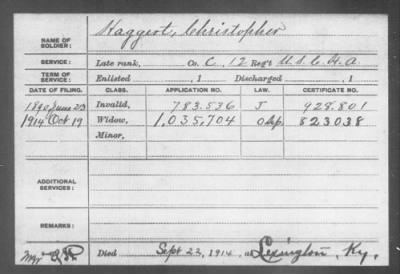 NAME OF SOLDIER: Haggert, Christopher
SERVICE: Late rank, Co. C, 12 Reg't U.S.C.H.A.
TERM OF SERVICE: Enlisted , 1 Discharged , 1
DATE OF FILING. CLASS. APPLICATION NO. LAW. CERTIFICATE NO.
1890 June 23 Invalid, 783.536 J 928.801
1914 Oct 19 Widow, 1,035,704 823038
Minor,
ADDITIONAL SERVICES:
REMARKS:
Died Sept 22, 1914, at Lexington, Ky.